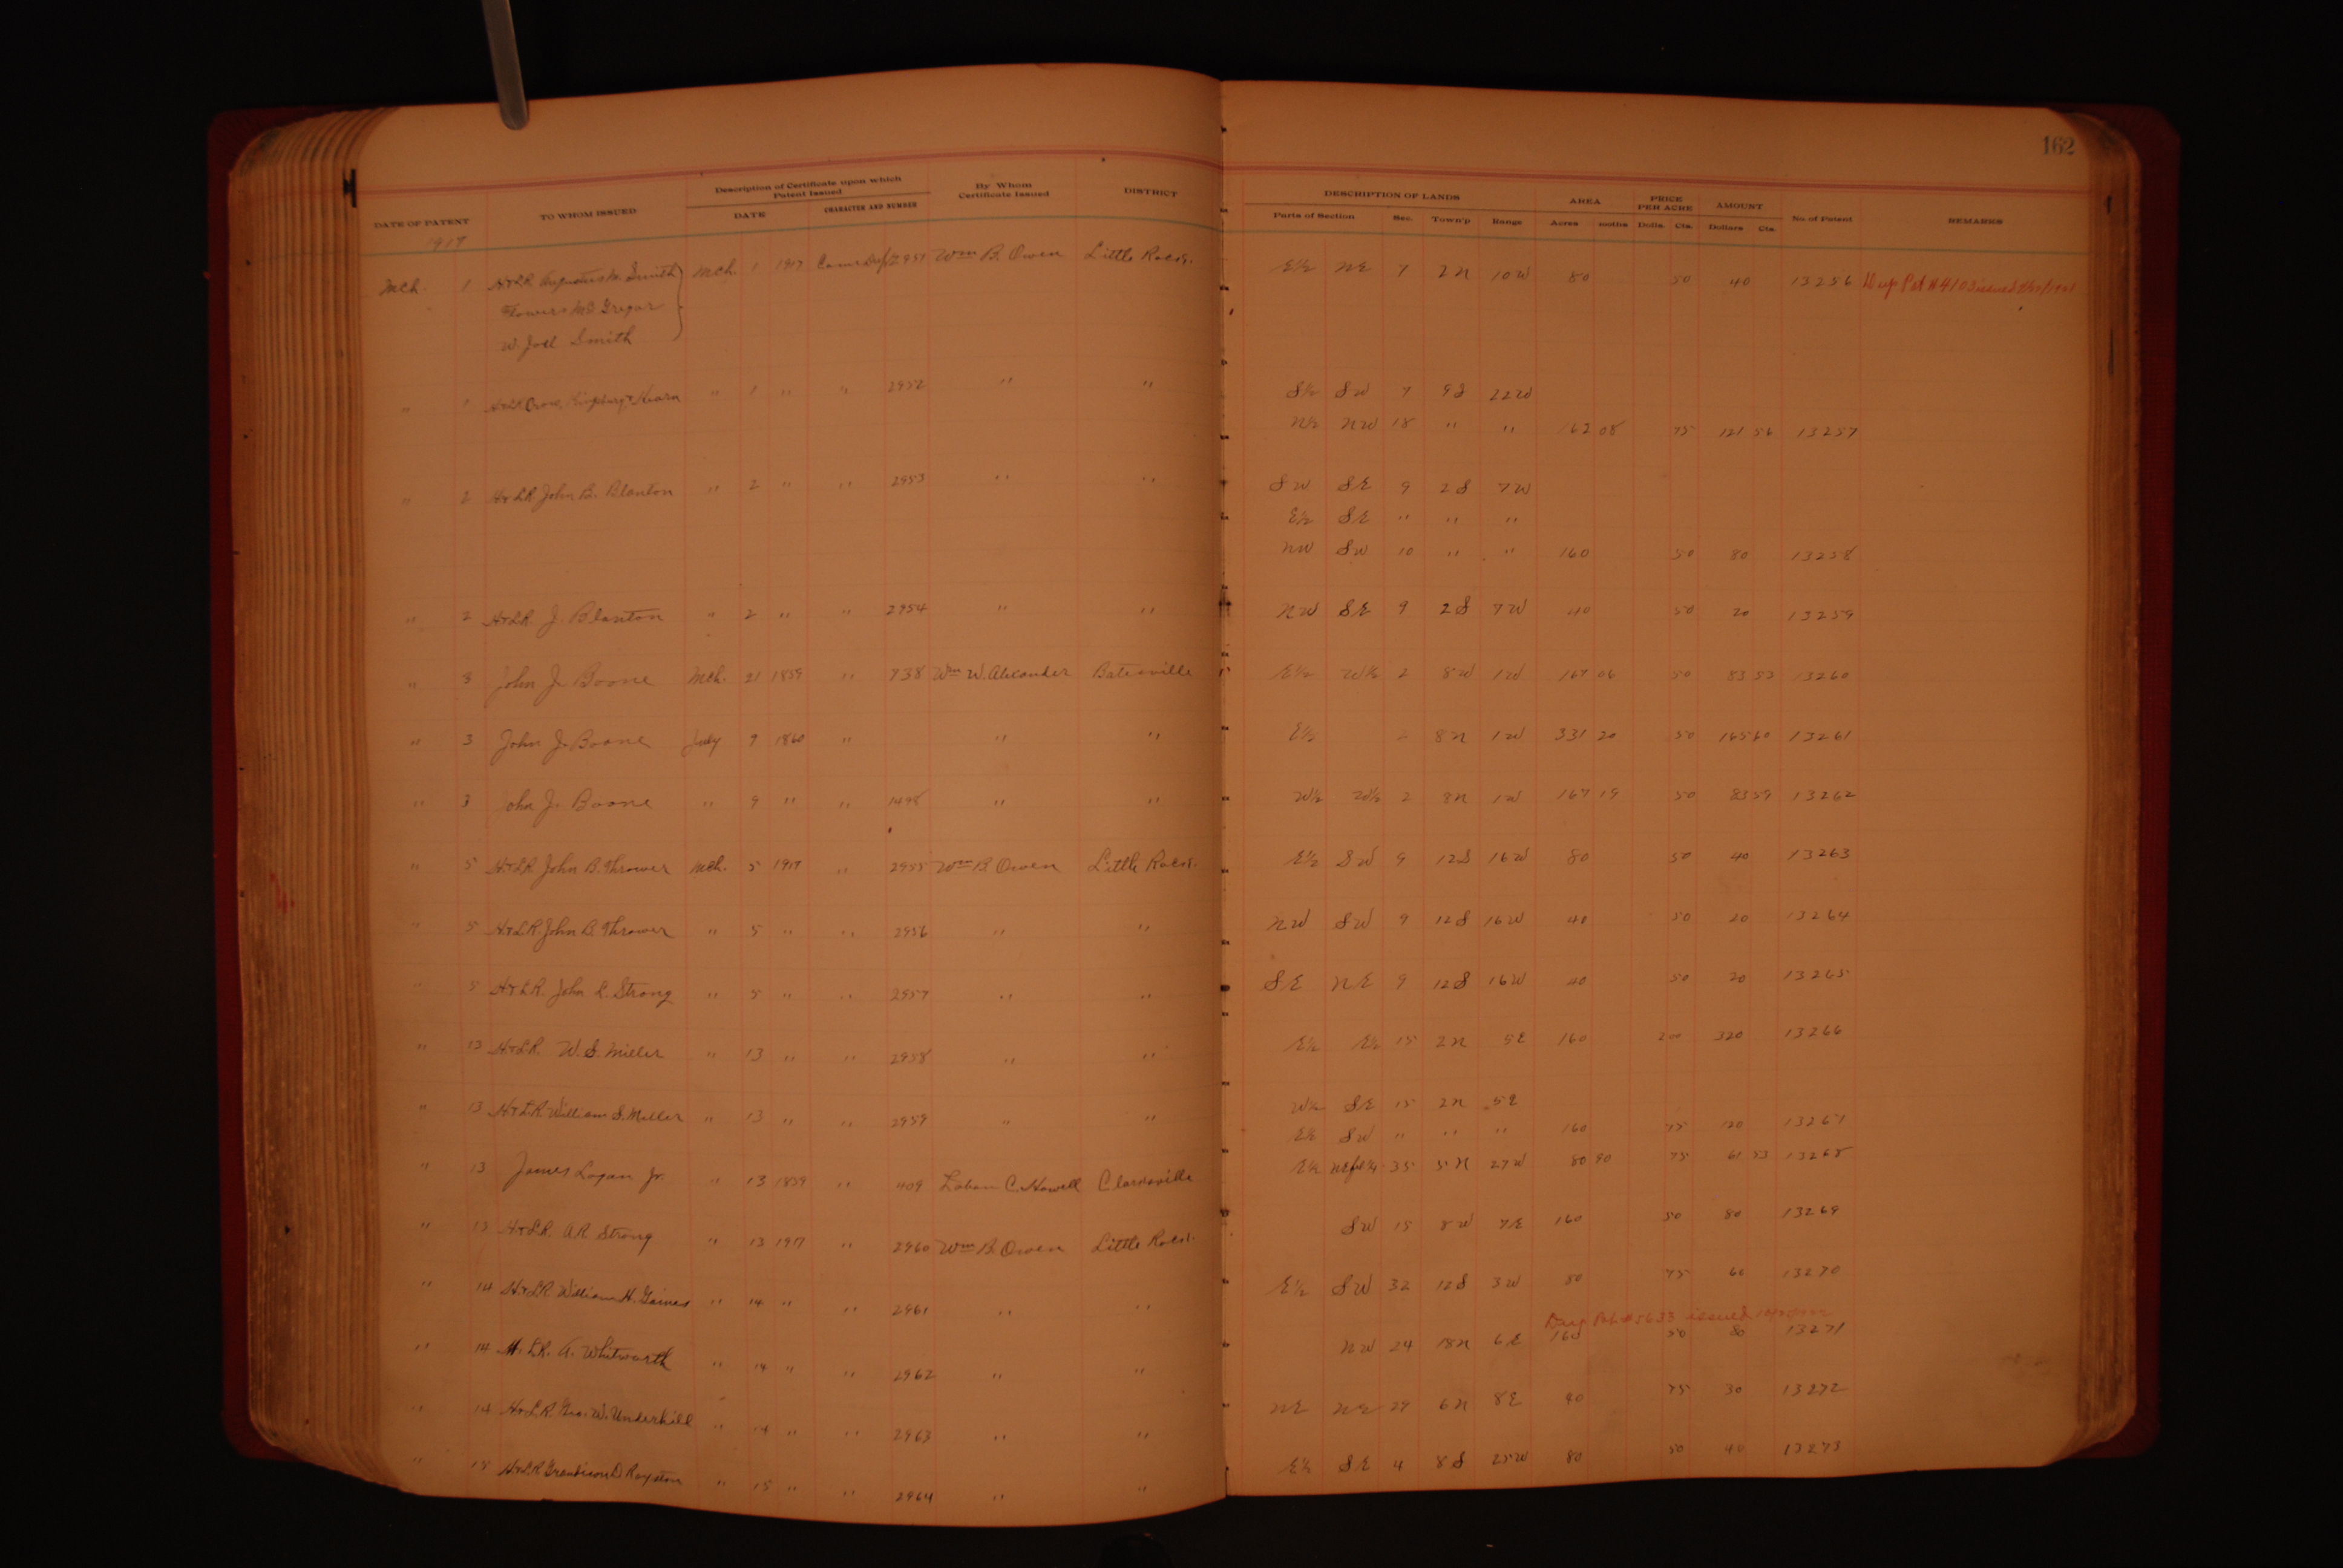 162
DATE OF PATENT TO WHOM ISSUED Description of Certificate upon which Patent Issued DATE CHARACTER AND NUMBER By Whom Certificate Issued DISTRICT DESCRIPTION OF LANDS Parts of Section Sec. Town'p Range AREA Acres 100ths PRICE PER ACRE Dolls. Cts. AMOUNT Dollars Cts. No. of Patent REMARKS
1917
Mch. 1 H&LR Augustus M. Smith Mch. 1 1917 2951 Wm B. Owen Little Rock. E½ NE 7 2N 10W 80 50 40 13256 Dup Pat # 410 issued
Flowers McGregor
W. Joel Smith
" 1 H&LR Crow, & Hearn " 1 " " 2952 " " S½ SW 7 9S 22W
N½ NW 18 " " 162 08 75 121 56 13257
" 2 H&LR. John B. Blanton " 2 " " 2953 " " SW SE 9 2S 7W
E½ SE " " "
NW SW 10 " " 160 50 80 13258
" 2 H&LR. J. Blanton " 2 " " 2954 " " NW SE 9 2S 7W 40 50 20 13259
" 3 John J. Boone Mch. 21 1859 " 738 Wm W. Alexander Batesville E½ W½ 2 8W 1W 167 06 50 83 53 13260
" 3 John J. Boone July 9 1860 " " " E½ 8N 1W 331 20 50 165 60 13261
" 3 John J. Boone " 9 " " 1498 " " W½ W½ 2 8N 1W 167 19 50 83 59 13262
" 5 H&LR John B. Thrower Mch. 5 1917 " 2955 Wm B. Owen Little Rock. E½ SW 9 12S 16W 80 50 40 13263
" 5 H&LR. John B. Thrower " 5 " " 2956 " " NW SW 9 12S 16W 40 50 20 13264
" 5 H&LR. John L. Strong " 5 " " 2957 " " SE NE 9 12S 16W 40 50 20 13265
" 13 H&LR. W. S. Miller " 13 " " 2958 " " E½ E½ 15 2N 5E 160 2 00 320 13266
" 13 H&LR William S. Miller " 13 " " 2959 " " W½ SE 15 2N 5E
E½ SW " " " 160 75 120 13267
" 13 James Logan Jr. " 13 1859 " 409 Laban C. Howell Clarksville E½ 35 5N 27W 80 90 75 61 53 13268
" 13 H&LR. A.R. Strong " 13 1917 " 2960 Wm B. Owen Little Rock. SW 15 8W 7E 160 50 80 13269
" 14 H&LR William H. Gaines " 14 " " 2961 " " E½ SW 32 12S 3W 80 75 60 13270
Dup Pat # 5633 issued
" 14 H. LR. A. Whitworth " 14 " " 2962 " " NW 24 18N 6E 160 50 80 13271
" 14 H&LR. Geo. W. Underhill " 14 " " 2963 " " NE NE 29 6N 8E 40 75 30 13272
" 15 H&LR Grandison D. Royston " 15 " " 2964 " " E½ SE 4 8S 25W 80 50 40 13273